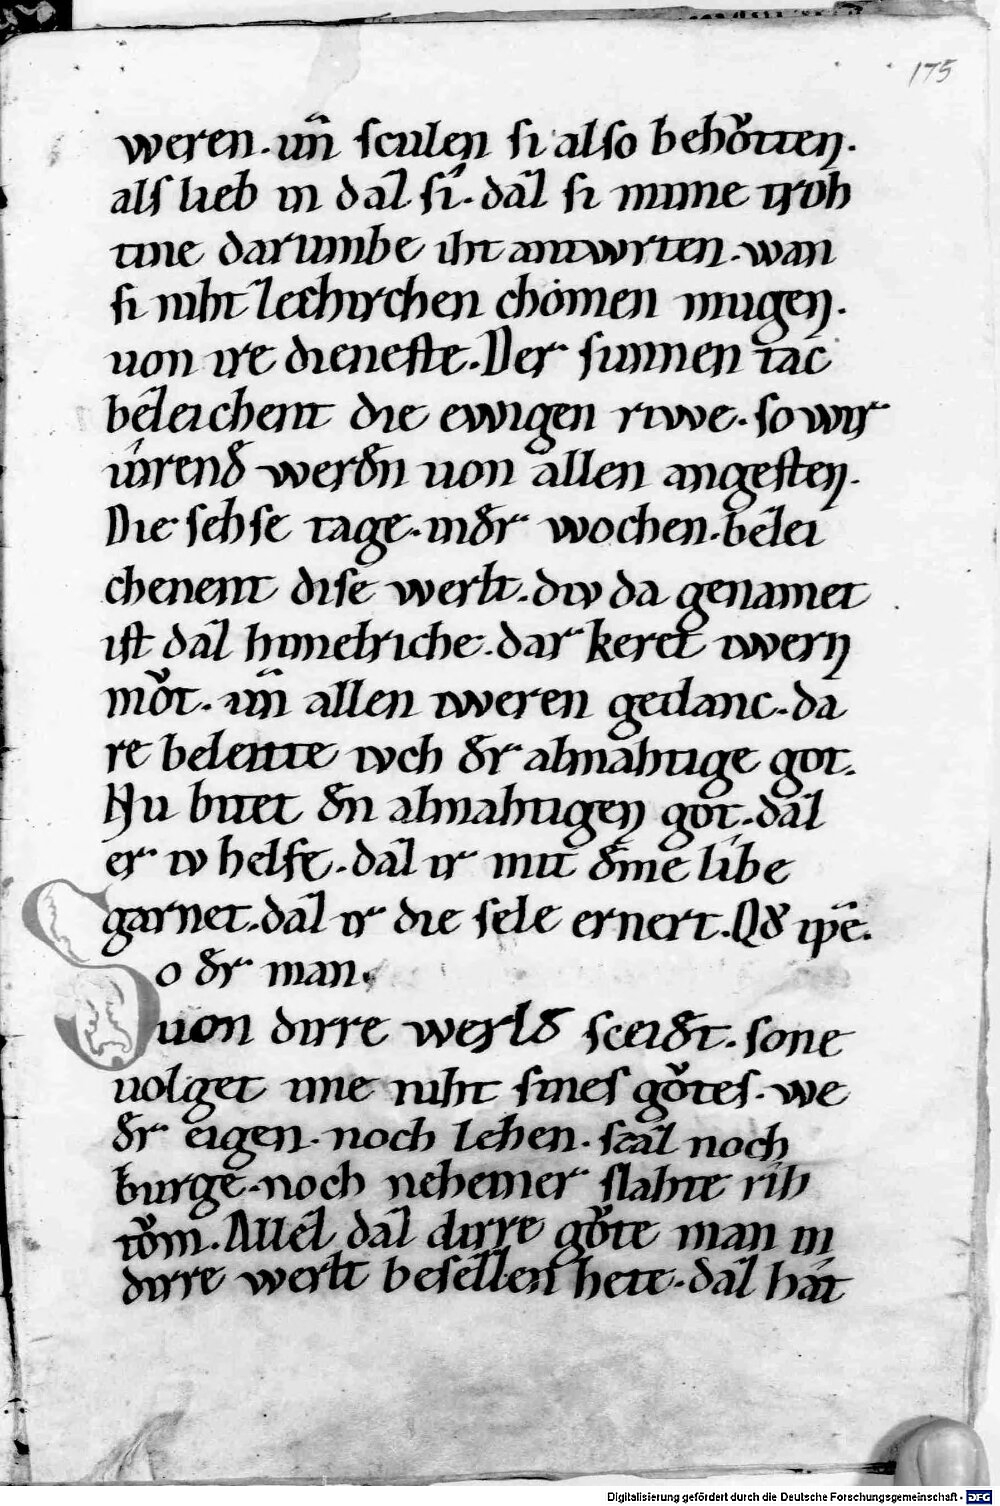 175
weren. uñ sculen si also behoͮten.
als lieb in dāz si. dāz si mime troh
tine darumbe iht antwrten. wan
si niht lechirchen chomen mugen.
uon ire dieneste. Der sunnen tac
bezeichent die ewigen rivve. so wir
uirend werdn uon allen angesten.
Die sehse tage. in dr wochen. bezei
chenent dise werlt. div da genamet
ist daz himelriche. dar keret iwern
moͮt. uñ allen iweren gedanc. da
re beleitte ivch dr almahtige got.
Nu bitet dn almahtigen got. daz
er iv helfe. daz ir mit deme libe
garnet. daz ir die sele ernert. Qd ip̄e.
So dr man.
uon dirre werld sceidt. sone
uolget ime niht sines goͮtes. we
dr eigen. noch lehen. scaz noch
burge. noch nehemer slahte rih
toͮm. Allez daz dirre goͮte man in
dirre werlt besezzen hete. daz hat
Digitalisierung gefördert durch die Deutsche Forschungsgemeinschaft - DFG